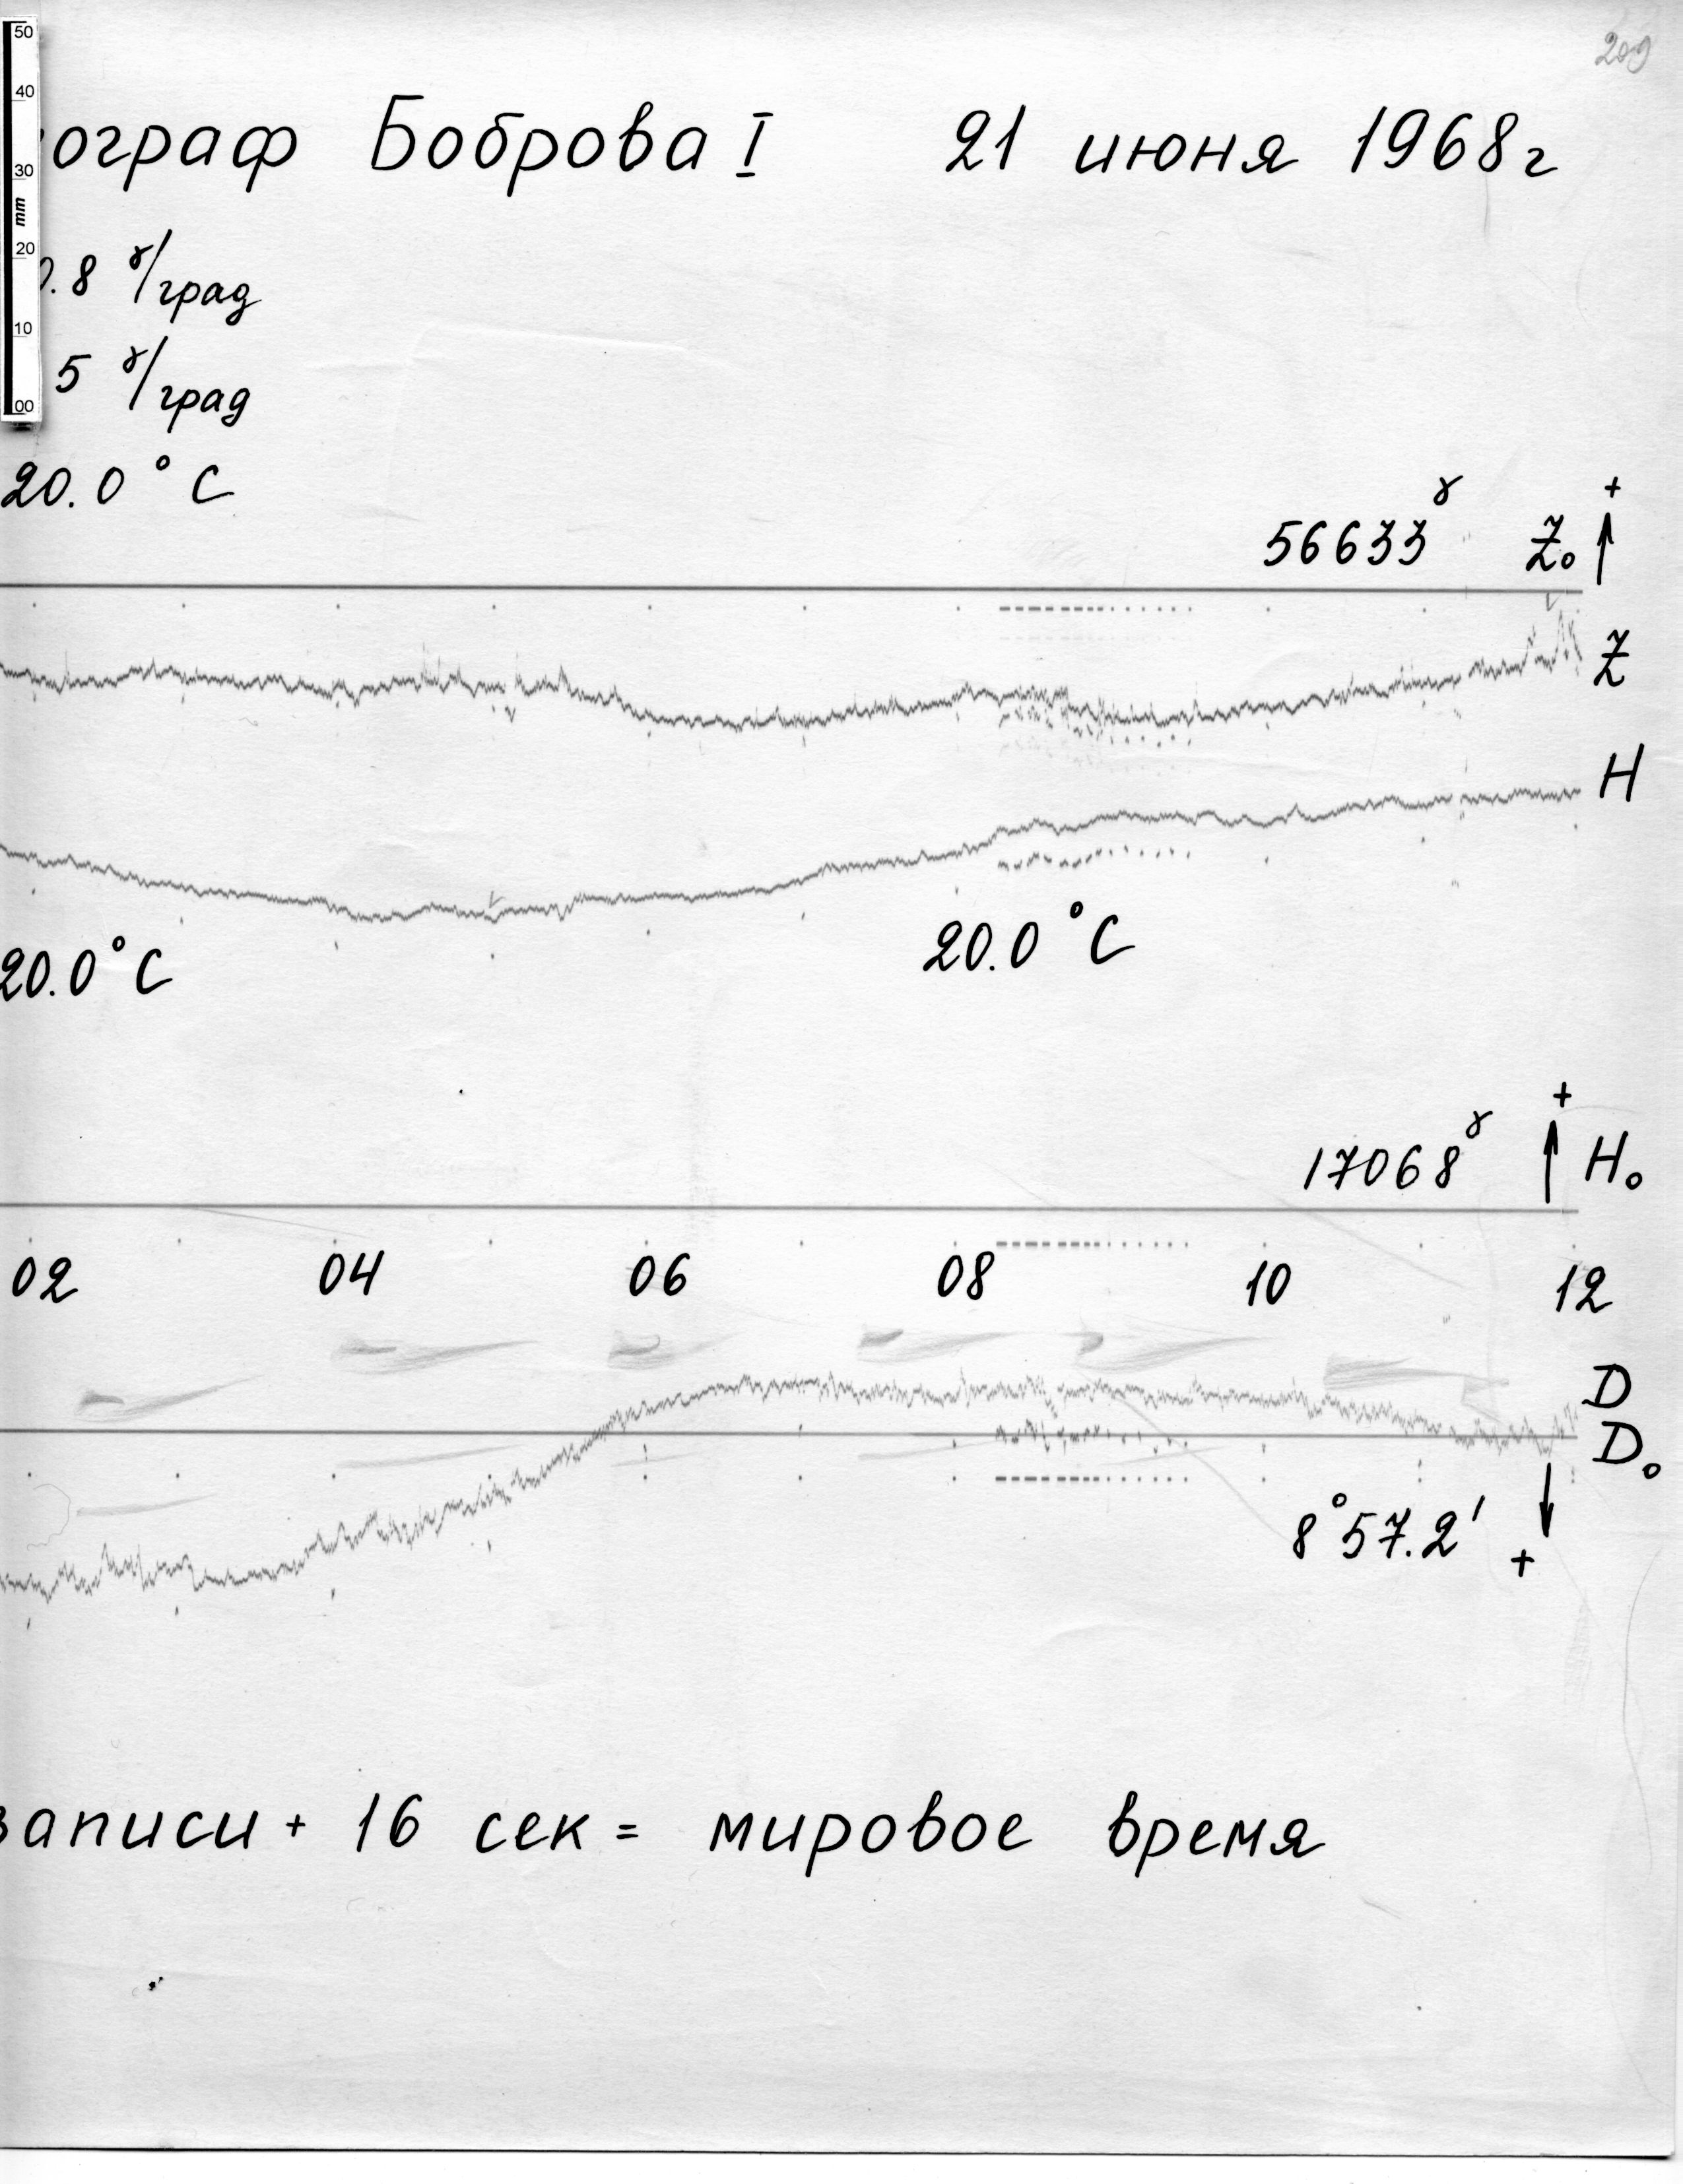 209
50
40
30
mm
20
10
00
ограф Боброва I 21 июня 1968г
.8 γ/град
5 γ/град
20.0°C
56633γ Z₀ +
Z
H
20.0°C 20.0°C
17068γ + H₀
02 04 06 08 10 12
D
D₀
8°57.2' +
записи + 16 сек = мировое время